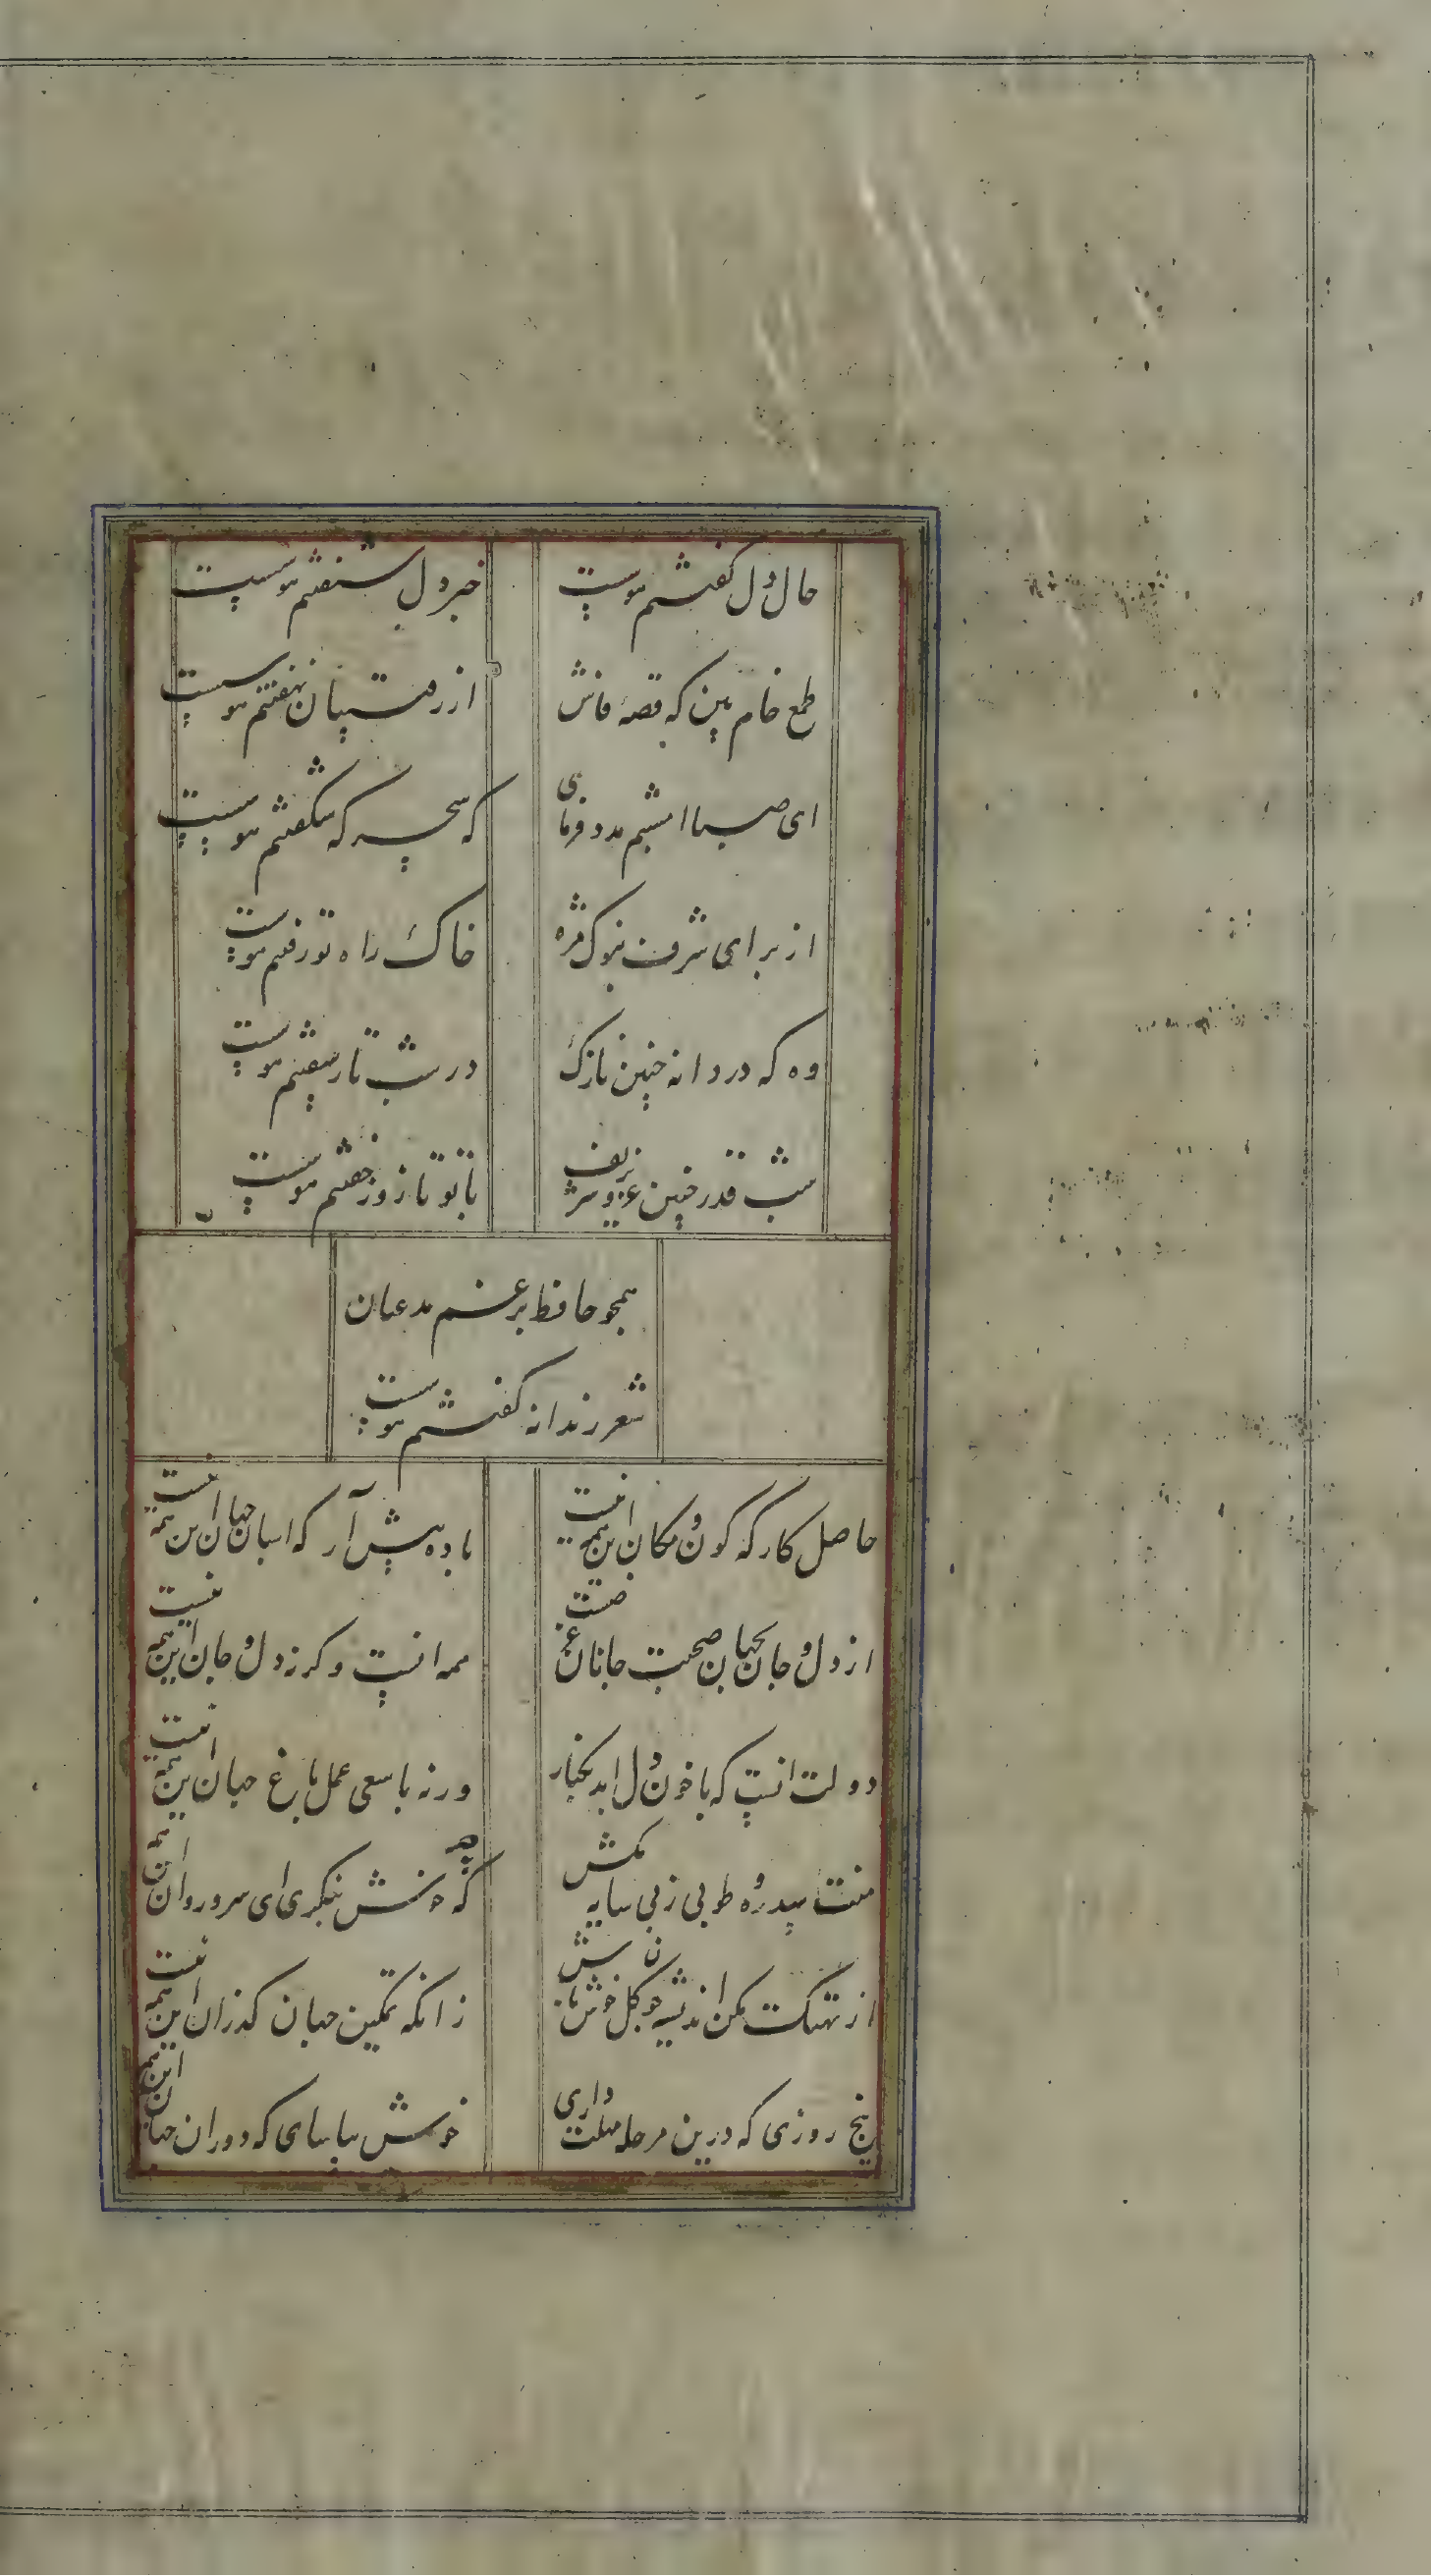 حال دل گفتنم هوست
خبر دل شنفتنم هوست
طمع خام بین که قصهٔ فاش
از رقیبان نهفتنم هوست
ای صبا امشبم مدد فرمای
که سحرکه شکفتنم هوست
از برای شرف بنوک مژه
خاک راه تو رفتنم هوست
وه که دردانه چنین نازک
در شب تار سفتنم هوست
شب قدر چنین عزیز و شریف
با تو تا روز خفتنم هوست
همچو حافظ برغم مدعیان
شعر رندانه گفتنم هوست
حاصل کارکه کون و مکان این همه نیست
باده پیش آر که اسباب جهان این همه نیست
از دل و جان بجهان صحبت جانان غرضست
همه انست وکرنه دل و جان این همه نیست
دولت انست که با خون دل اید بکنار
ورنه با سعی عمل باغ جهان این همه نیست
منت سدره و طوبی ز پی سایه مکش
که چه خوش بنکری ای سرو روان این همه
از تهتک مکن اندیشه چو کل خوش باش
زانکه تمکین جهان کذران این همه نیست
پنج روزی که درین مرحله مهلت داری
خوش بیاسای که دوران جهان این همه